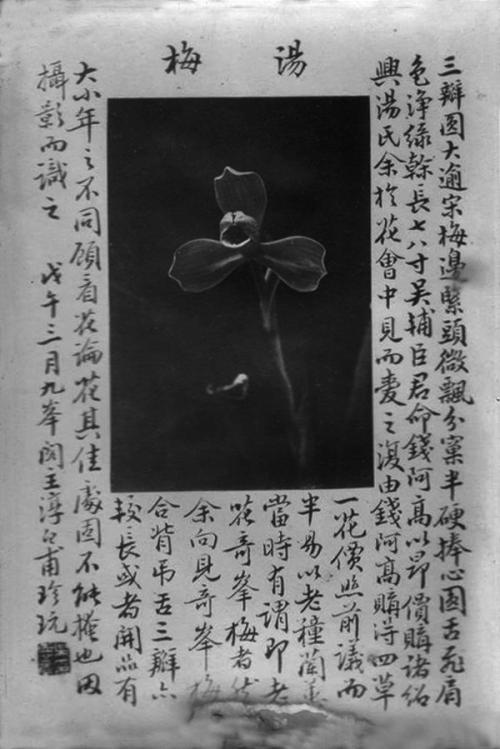 湯梅
三瓣圆大逾宋梅邊緊頭微飄分窠半硬捧心圆舌飛肩
色淨綠榦長七八寸吴輔臣君命錢阿高以昂價購諸紹
興湯氏余於花會中見而愛之復由錢阿高購得四草
一花價照前議而
半易以老種蘭蕙
當時有謂即老
花奇峯梅者然
余向見奇峯梅
合背吊舌三瓣亦
較長或者開品有
大小年之不同顧看花論花其佳處固不能掩也因
攝影而識之 戊午三月九峯阁主淳甫珍玩